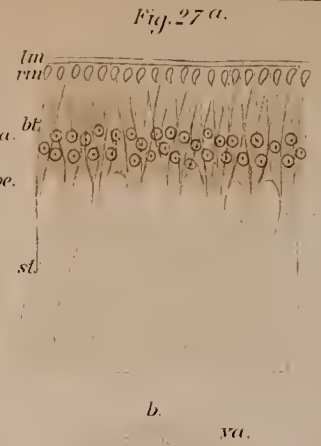 Fig. 27 a.
lm
rm
bt.
a.
pe.
st.
b.
va.